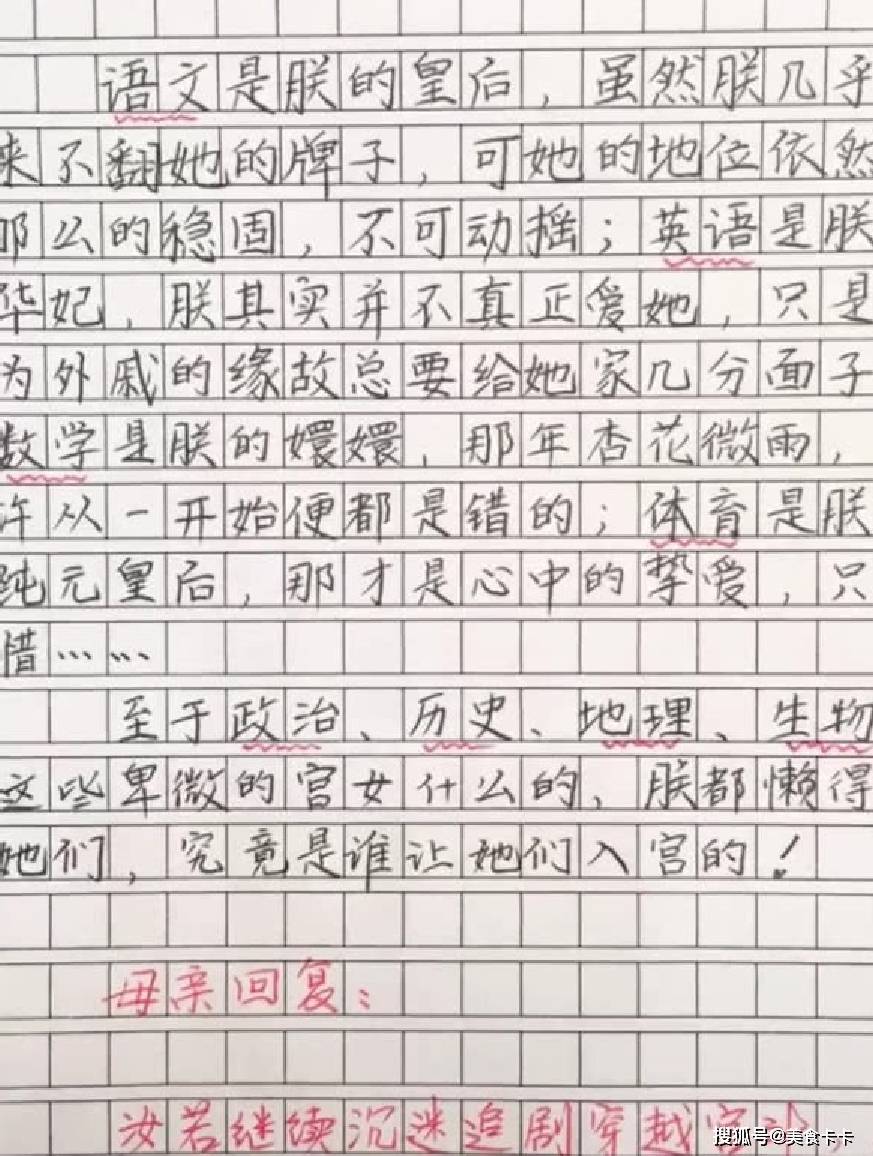 语文是朕的皇后，虽然朕几乎
来不翻她的牌子，可她的地位依然
那么的稳固，不可动摇；英语是朕
华妃，朕其实并不真正爱她，只是
为外戚的缘故总要给她家几分面子
数学是朕的嬛嬛，那年杏花微雨，
许从一开始便都是错的；体育是朕
纯元皇后，那才是心中的挚爱，只
惜……
至于政治、历史、地理、生物
这些卑微的宫女什么的，朕都懒得
她们，究竟是谁让她们入宫的！
母亲回复：
汝若继续沉迷追剧穿越宫斗，
搜狐号@美食卡卡